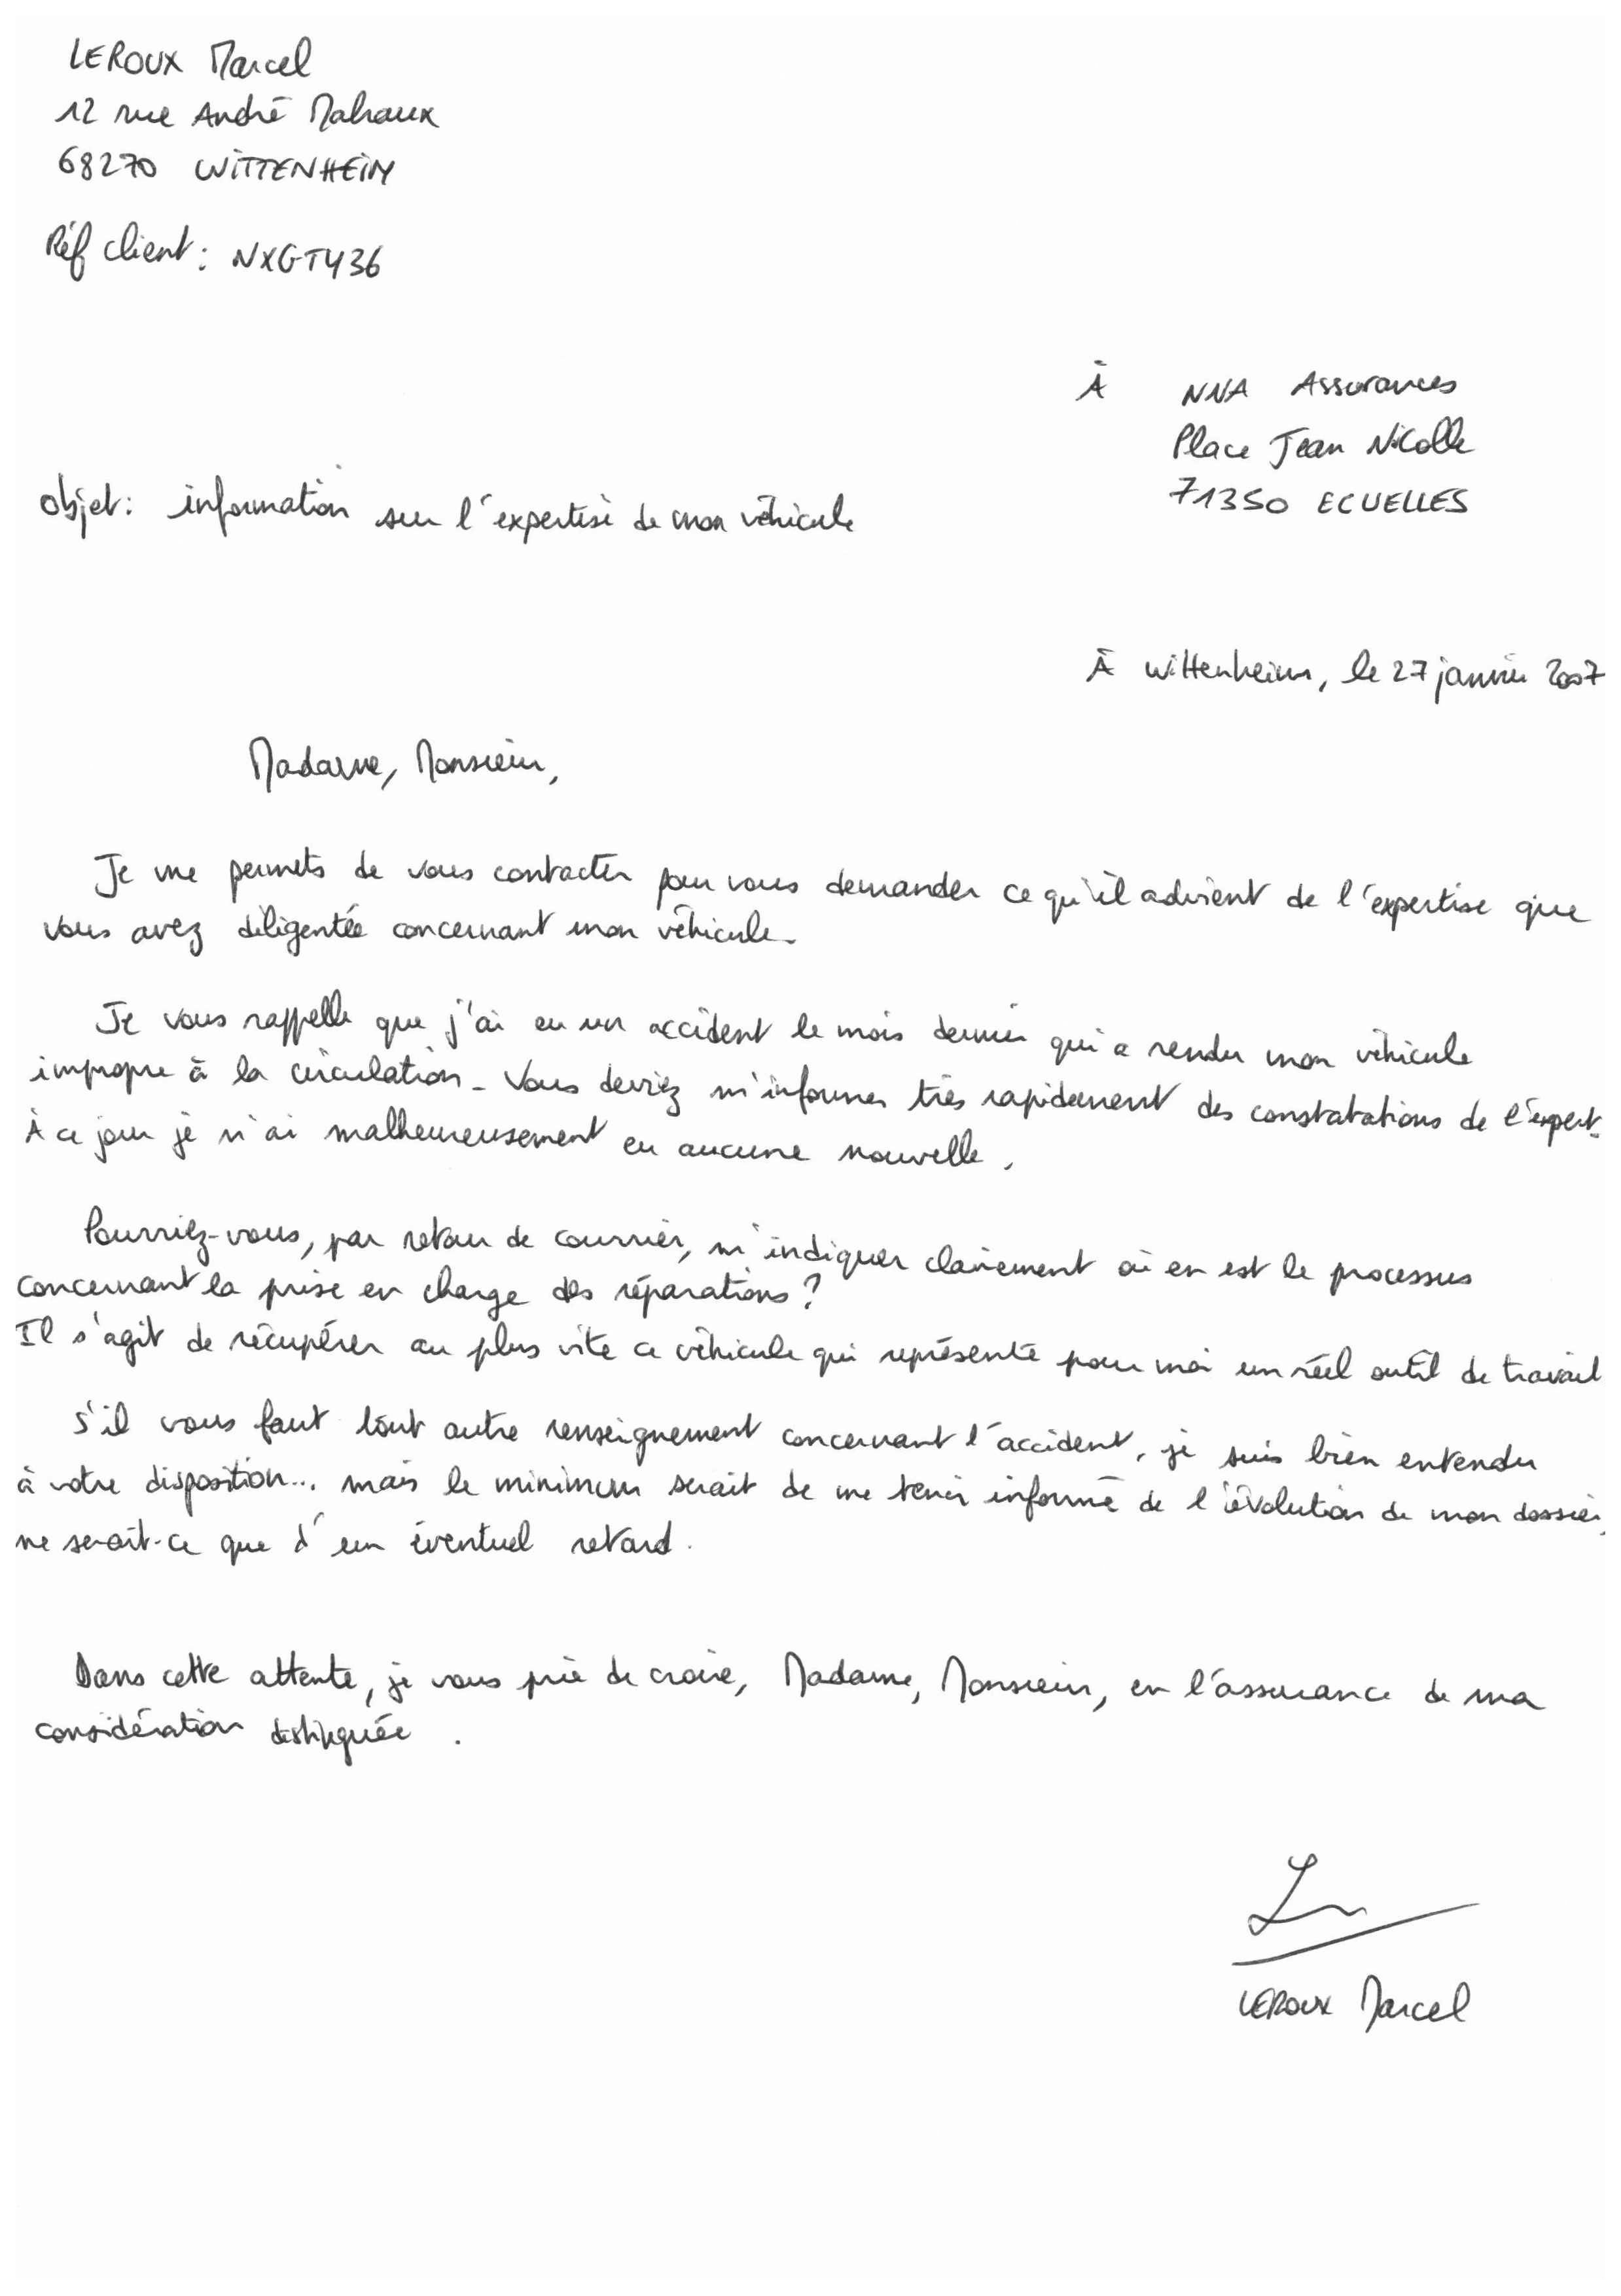 LEROUX Marcel
12 rue André Malraux
68270 WITTENHEIM
Réf client : NXGTY36
À NNA Assurances
Place Jean Nicolle
71350 ECUELLES
Objet : information sur l'expertise de mon véhicule
À Wittenheim, le 27 janvier 2007
Madame, Monsieur,
Je me permets de vous contacter pour vous demander ce qu'il advient de l'expertise que
vous avez diligentée concernant mon véhicule.
Je vous rappelle que j'ai eu un accident le mois dernier qui a rendu mon véhicule
impropre à la circulation. Vous deviez m'informer très rapidement des constatations de l'expert.
À ce jour je n'ai malheureusement eu aucune nouvelle.
Pourriez-vous, par retour de courrier, m'indiquer clairement où en est le processus
concernant la prise en charge des réparations ?
Il s'agit de récupérer au plus vite ce véhicule qui représente pour moi un réel outil de travail
S'il vous faut tout autre renseignement concernant l'accident, je suis bien entendu
à votre disposition... mais le minimum serait de me tenir informé de l'évolution de mon dossier,
ne serait-ce que d'un éventuel retard.
Dans cette attente, je vous prie de croire, Madame, Monsieur, en l'assurance de ma
considération distinguée.
LEROUX Marcel